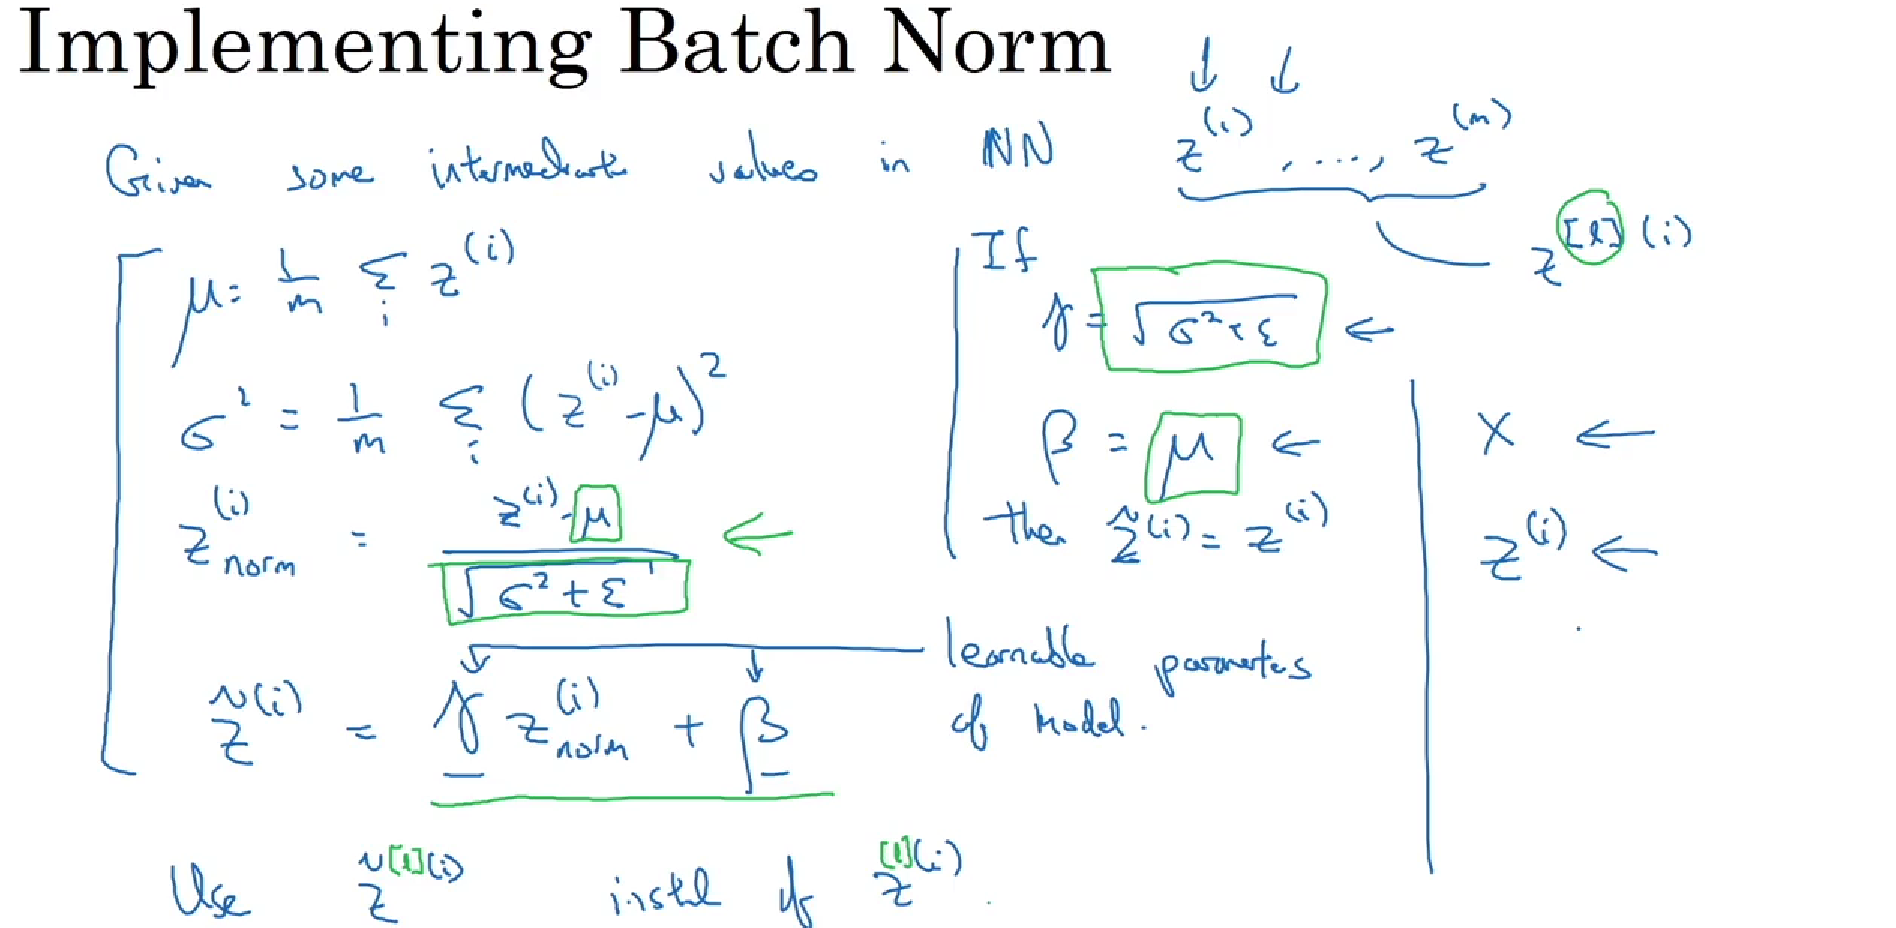 Implementing Batch Norm
Given some intermediate values in NN z^(1), ...., z^(m)
z^[l](i)
μ = 1/m Σ_i z^(i)
σ² = 1/m Σ_i (z^(i) - μ)²
z^(i)_norm = (z^(i) - μ) / √(σ² + ε) ←
z̃^(i) = γ z^(i)_norm + β
learnable parameters
of model.
If
γ = √(σ² + ε) ←
β = μ ←
then z̃^(i) = z^(i)
X ←
z^(i) ←
Use z̃^[l](i) instead of z^[l](i).